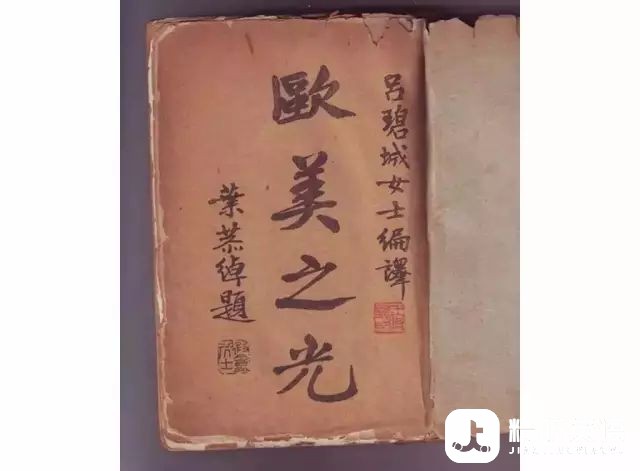 吕碧城女士編譯
歐美之光
葉恭綽題